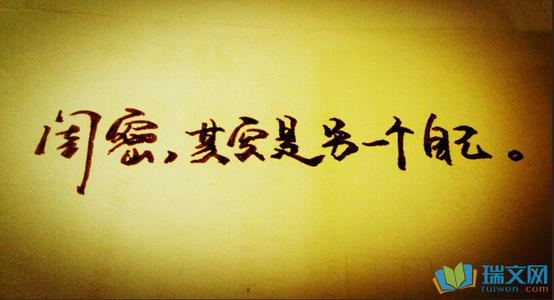 闺密，其实是另一个自己。
瑞文网
ruiwen.com